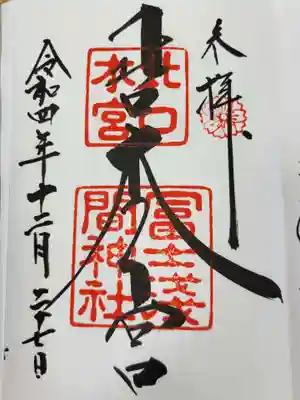 奉拝
北口本宮
北口
本宮
冨士淺
間神社
令和四年十二月二十七日